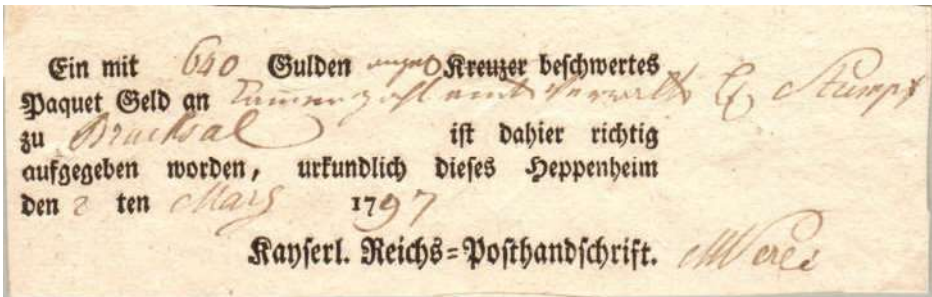 Ein mit 640 Gulden Kreuzer beschwertes
Paquet Geld an Stumpf
zu Bruchsal ist dahier richtig
aufgegeben worden, urkundlich dieses Heppenheim
den 2 ten Marz 1797
Kayserl. Reichs=Posthandschrift.